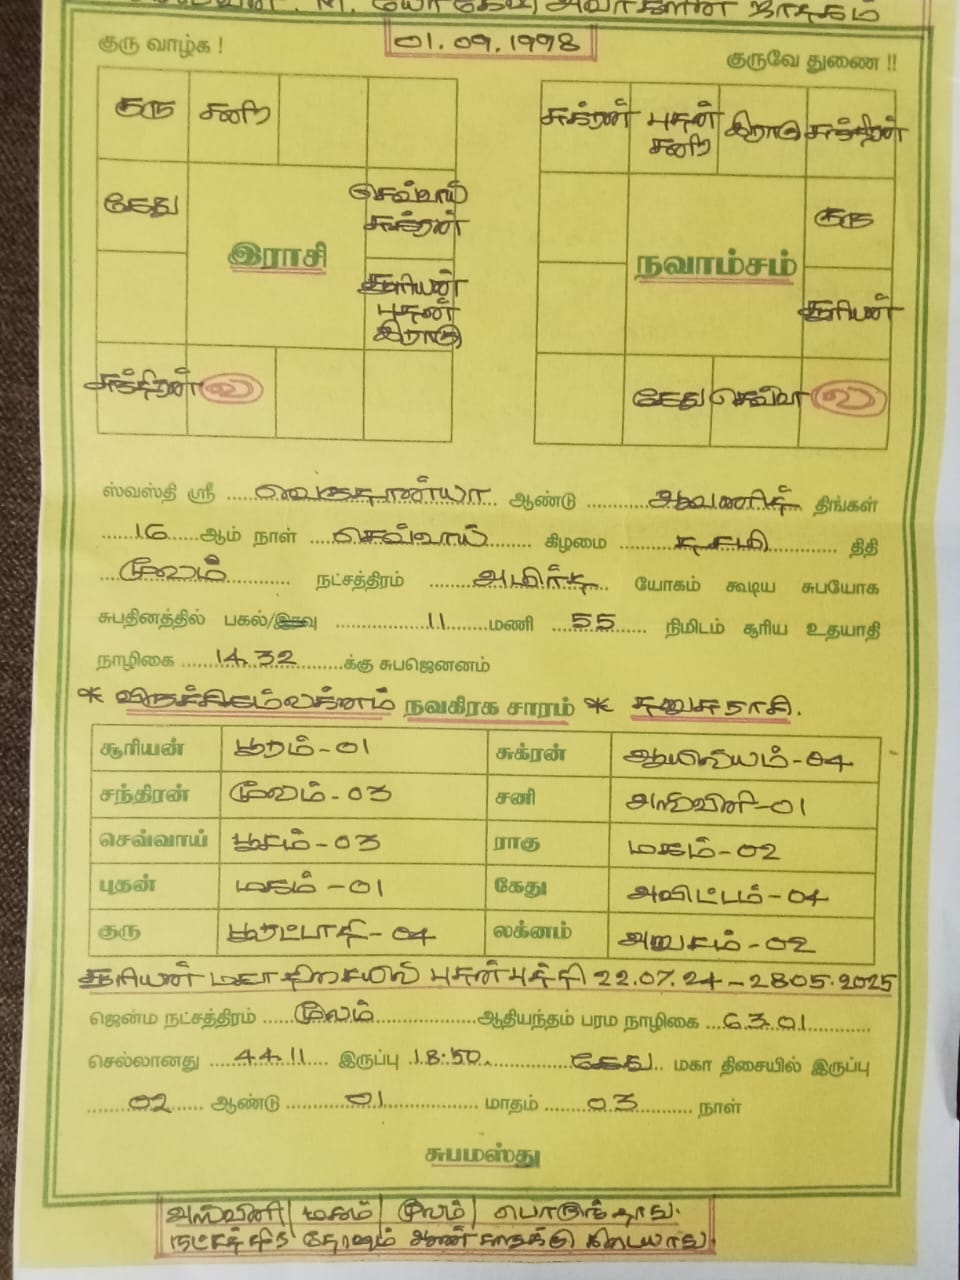 M. யோகேஷ் அவர்களின் ஜாதகம்
குரு வாழ்க ! 01.09.1998 குருவே துணை !!
குரு சனி
கேது
செவ்வாய்
சுக்ரன்
இராசி
சூரியன்
புதன்
இராகு
சந்திரன் ல
சுக்ரன் புதன் சனி இராகு சந்திரன்
குரு
நவாம்சம்
சூரியன்
கேது செவ்வா ல
ஸ்வஸ்தி ஸ்ரீ வெகுதான்யா ஆண்டு ஆவணித் திங்கள்
16 ஆம் நாள் செவ்வாய் கிழமை தசமி திதி
மூலம் நட்சத்திரம் அமிர்த யோகம் கூடிய சுபயோக
சுபதினத்தில் பகல்/இரவு 11 மணி 55 நிமிடம் சூரிய உதயாதி
நாழிகை 14.32 க்கு சுபஜெனனம்
* விருச்சிகம் லக்னம் நவகிரக சாரம் * தனுசு ராசி.
சூரியன் பூரம்-01 சுக்ரன் ஆயில்யம்-04
சந்திரன் மூலம்-03 சனி அஸ்வினி-01
செவ்வாய் பூசம்-03 ராகு மகம்-02
புதன் மகம்-01 கேது அவிட்டம்-04
குரு பூரட்டாதி-04 லக்னம் அனுசம்-02
சூரியன் மகா திசையில் புதன் புத்தி 22.07.24-28.05.2025
ஜென்ம நட்சத்திரம் மூலம் ஆதியந்தம் பரம நாழிகை 63.01
செல்லானது 44.11 இருப்பு 18:50 கேது மகா திசையில் இருப்பு
02 ஆண்டு 01 மாதம் 03 நாள்
சுபமஸ்து
அஸ்வினி/மகம்/மூலம்/ பொருந்தாது.
நட்சத்திர தோஷம் ஆண் ஜாதக்கு கிடையாது.